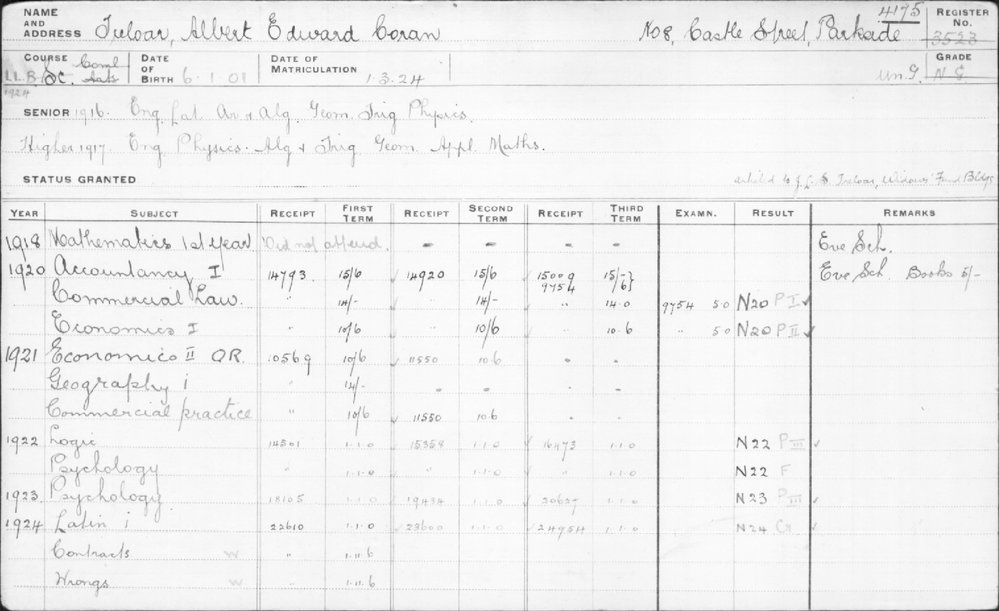 NAME AND ADDRESS Treloar, Albert Edward Coran No 8, Castle Street, Parkside 4175 REGISTER No. 3523
COURSE LL.B. Sc. Coml 1924 DATE OF BIRTH 6.1.01 DATE OF MATRICULATION 1.3.24 GRADE Un.G.
SENIOR 1916. Eng. Lat. Ar & Alg. Geom. Trig Physics.
Higher 1917. Eng. Physics. Alg & Trig. Geom. Appl. Maths.
STATUS GRANTED Treloar, Widows' Fund Bldgs
YEAR SUBJECT RECEIPT FIRST TERM RECEIPT SECOND TERM RECEIPT THIRD TERM EXAMN. RESULT REMARKS
1918 Mathematics 1st Year Did not attend. - - - - Eve Sch.
1920 Accountancy I 14793. 15/6 14920 15/6 15009 9754 15/- /6} Eve Sch. Books 5/-
Commercial Law. " 14/- " 14/- " 14.0 9754 5.0 N20 P I ✓
Economics I " 10/6 " 10/6 " 10.6 " 5.0 N20 P II ✓
1921 Economics II OR. 10569 10/6 ✓ 11550 10.6 - -
Geography i " 14/- - - - -
Commercial practice " 10/6 ✓ 11550 10.6 - -
1922 Logic 14501 1.1.0 ✓ 15358 1.1.0 ✓ 16473 1.1.0 N22 P III ✓
Psychology " 1.1.0 " 1.1.0 " 1.1.0 N22 F
1923 Psychology 18105 1.1.0 ✓ 19434 1.1.0 ✓ 20627 1.1.0 N23 P III ✓
1924 Latin i 22610 1.1.0 ✓ 23600 1.1.0 ✓ 24954 1.1.0 N24 Cr ✓
Contracts w " 1.11.6
Wrongs w " 1.11.6